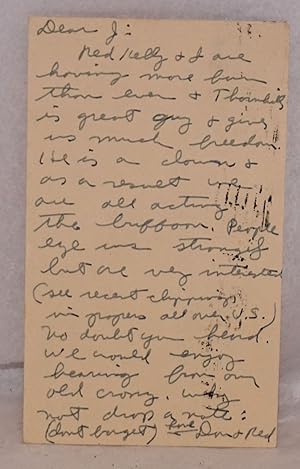 Dear J:
Red Kelly & I are
having more fun
than ever & Thornhill
is great guy & gives
us much freedom.
He is a clown &
as a result we
are all acting
the buffoon. People
eye us strongly
but are very interested
(see recent clippings
in papers all over U.S.)
No doubt you heard.
We would enjoy
hearing from our
old crony. Why
not drop a note:
(dont forget) Love Don & Red